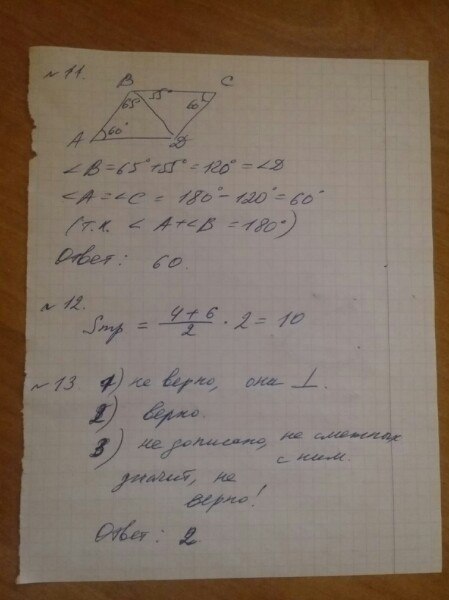 № 11.
B C
65° 55° 60°
A 60° D
∠B = 65° + 55° = 120° = ∠D
∠A = ∠C = 180° - 120° = 60°
(т.к. ∠A + ∠B = 180°)
Ответ: 60.
№ 12.
Sтр = (4 + 6)/2 · 2 = 10
№ 13 1) не верно, они ⊥.
2) верно.
3) не дописано, не смежных
с ним.
значит, не
верно!
Ответ: 2.